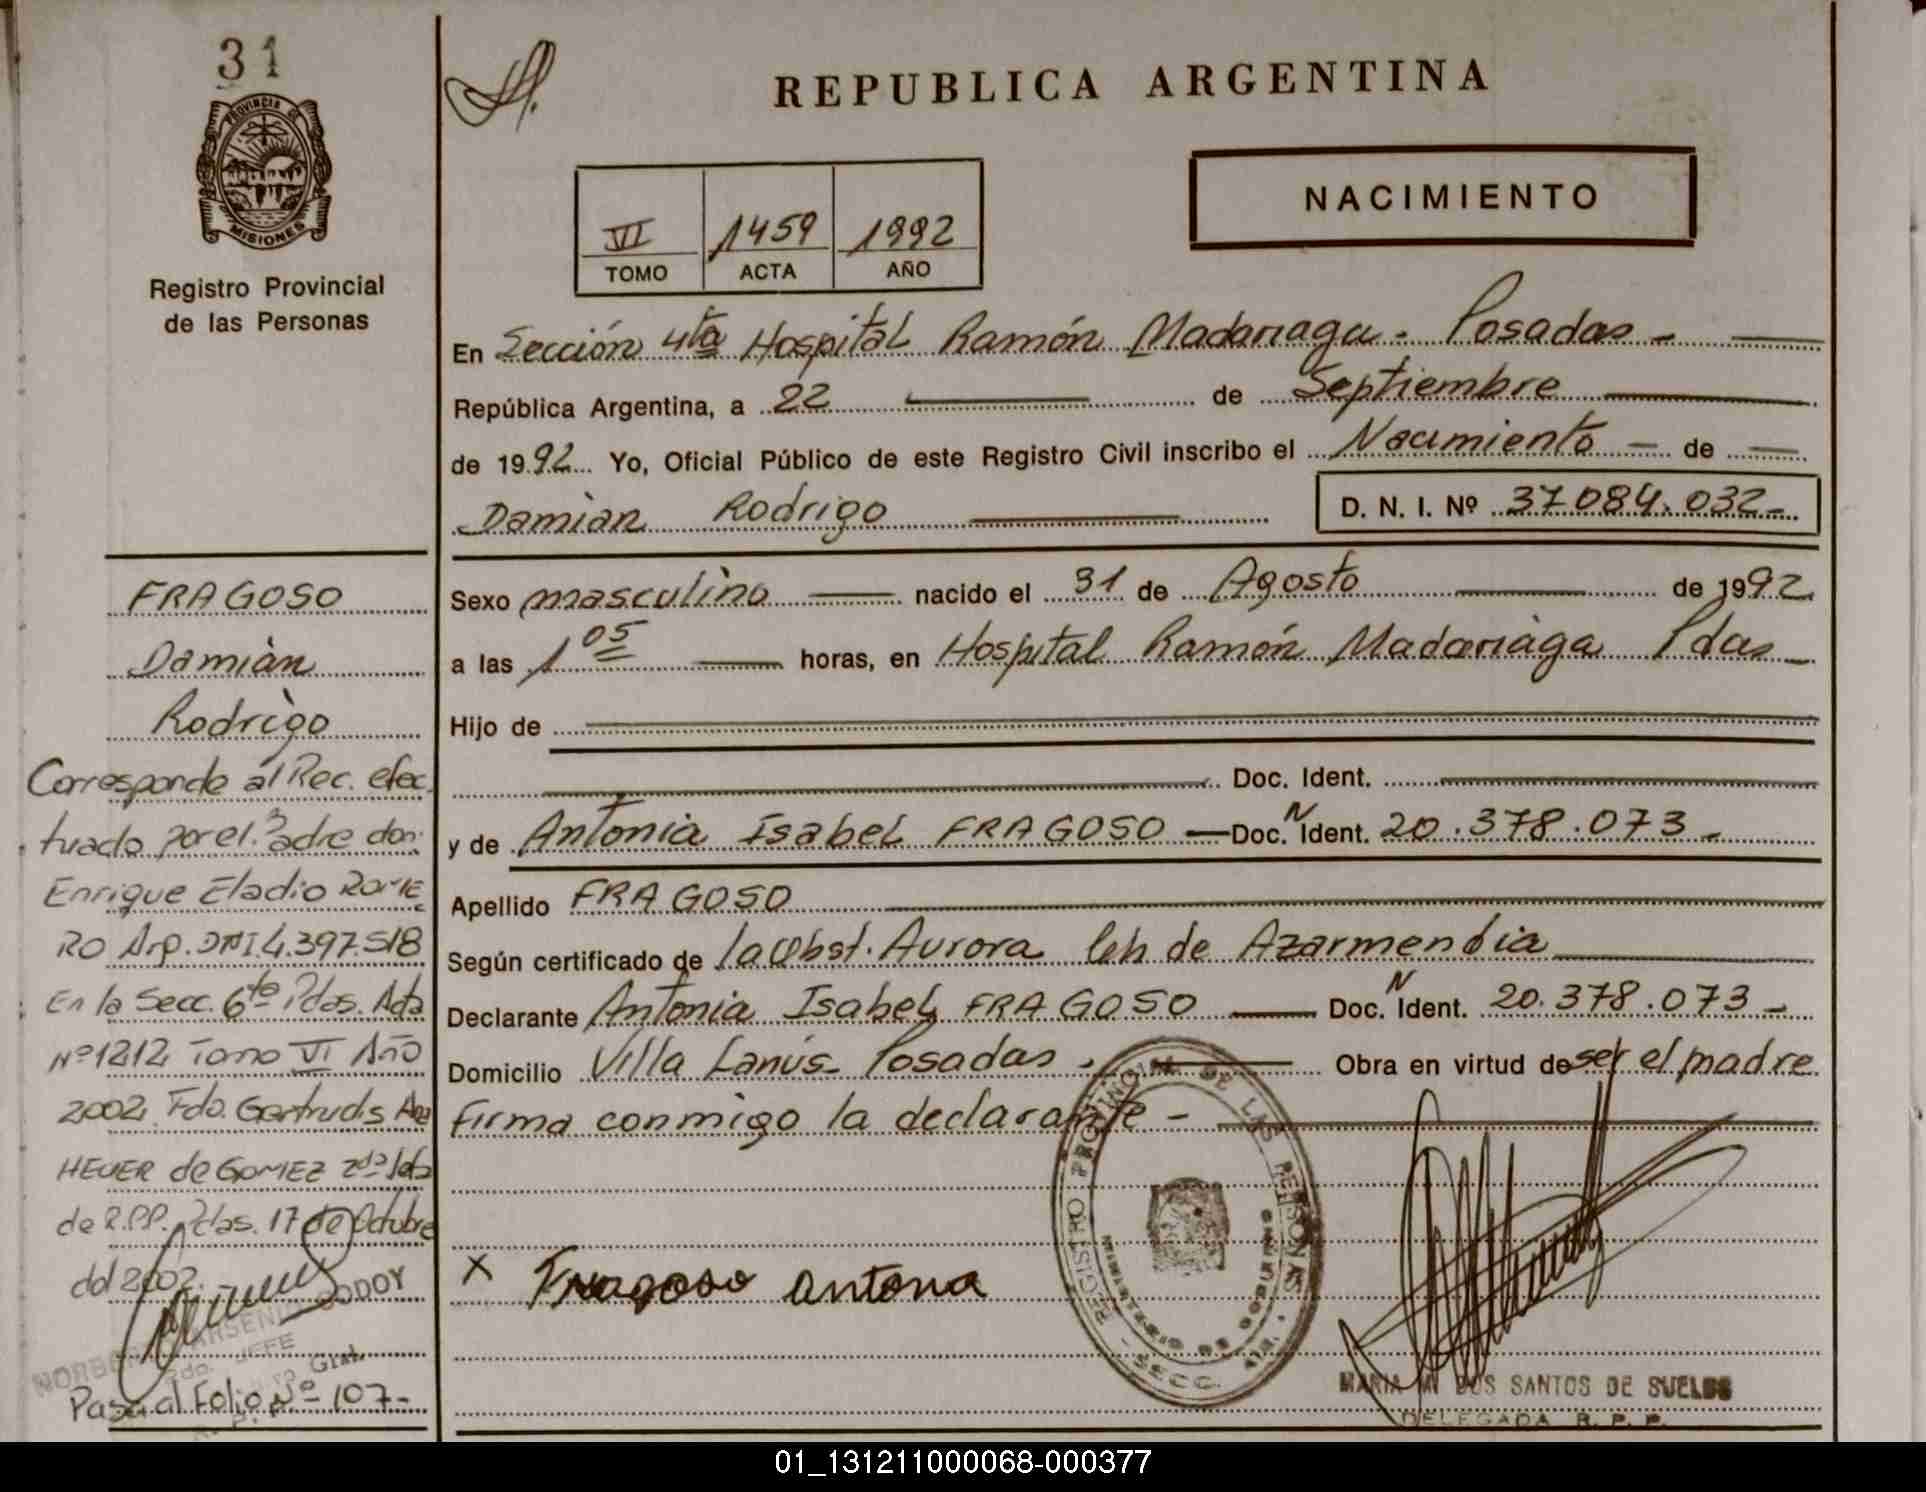 31
PROVINCIA DE
MISIONES
Registro Provincial
de las Personas
REPUBLICA ARGENTINA
NACIMIENTO
VI 1459 1992
TOMO ACTA AÑO
En Sección 4ta Hospital Ramón Madariaga - Posadas -
República Argentina, a 22 de Septiembre
de 1992 Yo, Oficial Público de este Registro Civil inscribo el Nacimiento - de
Damián Rodrigo
D. N. I. Nº 37084.032-
Sexo masculino nacido el 31 de Agosto de 1992
a las 1 05 horas, en Hospital Ramón Madariaga Pdas -
Hijo de
Doc. Ident.
y de Antonia Isabel FRAGOSO - Doc. N Ident. 20.378.073 -
Apellido FRAGOSO
Según certificado de la Obst. Aurora de Azarmendia
Declarante Antonia Isabel FRAGOSO Doc. N Ident. 20.378.073 -
Domicilio Villa Lanús - Posadas . Obra en virtud de ser el madre
firma conmigo la declarante -
x Fragoso Antona
REGISTRO PROVINCIAL DE LAS PERSONAS
SECC.
MARIA M DOS SANTOS DE SUELDO
DELEGADA R. P. P.
FRAGOSO
Damián
Rodrigo
Corresponde al Rec. efec
tuado por el Padre don:
Enrique Eladio ROME
RO Arg. DNI 4.397.518
En la Secc. 6ta Pdas. Acta
Nº 1212 Tomo VI Año
2002. Fdo. Gertrudis
HEUER de GOMEZ 2da Jefa
de R.P.P. Pdas. 17 de Octubre
del 2002.
GODOY
2do. JEFE
Gral.
Pasa al Folio Nº 107-
01_131211000068-000377